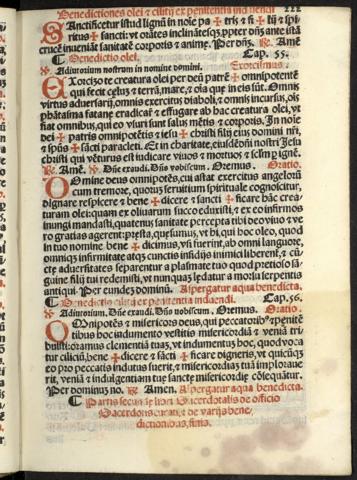 Benedictiones olei ⁊ cilicij ex penitentia induendi 222
SAnctificetur istud lignũ in noĩe pa✠tris ⁊ fi✠lij ⁊ spi
ritus✠sancti: vt orātes inclināteſqȝ ppter dñȝ ante istã
crucē inueniāt sanitatē corporis ⁊ anime. Per dñȝ. ℞. Amē
¶ Benedictio olei. Cap. 55.
℣. Adiutorium nostrum in nomine domini. Exorcismus.
EXorcizo te creatura olei per deũ patrē ✠ omnipotentē
qui fecit celuȝ ⁊ terrā, mare, ⁊ oĩa que in eis sũt. Omnis
virtus aduersarij, omnis exercitus diaboli, ⁊ omnis incursus, oĩs
phātasma satane eradicat⁊ effugare ab hac creatura olei, vt
fiat omnibus, qui eo vsuri sunt salus mētis ⁊ corporis. In noĩe
dei ✠ patris omnipotētis ⁊ iesu ✠ christi filij eius domini nři,
⁊ spũs ✠ sancti paracleti. Et in charitate, eiusdē dñi nostri Jesu
christi qui vēturus est iudicare viuos ⁊ mortuos ⁊ sclm p ignē.
℞. Amē. ℣. Dñe exaudi. Dñs vobiscum. Oremus. Oratio.
DOmine deus omnipotēs, cui astat exercitus angelorũ
cum tremore, quoruȝ seruitium spirituale cognoscitur,
dignare respicere ⁊ bene ✠ dicere ⁊ sancti ✠ ficare hāc crea-
turam olei: quam ex oliuarum succo eduxisti, ⁊ ex eo infirmos
inungi mandasti, quatenus sanitate percepta tibi deo viuo ⁊ ve
ro gratias agerent: presta, quesumus, vt hi, qui hoc oleo, quod
in tuo nomine bene ✠ dicimus, vsi fuerint, ab omni languore,
omniqȝ infirmitate atqȝ cunctis insidijs inimici liberent, ⁊ cũ-
cte aduersitates separentur a plasmate tuo quod pretioso sā-
guine filij tui redemisti, vt nunquaȝ ledatur a morsu serpentis
antiqui. Per eundeȝ dominũ. Aspergatur aqua benedicta.
¶ Benedictio cilicij ex penitentia induendi. Cap. 56.
℣. Adiutorium. Dñe exaudi. Dñs vobiscum. Oremus. Oratio.
OMnipotēs ⁊ misericors deus, qui peccatoribꝰ ⁊ penitē
tibus hoc indumento vestitis misericordiā ⁊ veniā tri
buisti: oramus clementiā tuaȝ, vt indumentuȝ hoc, quod voca
tur ciliciũ, bene ✠ dicere ⁊ sancti ✠ ficare digneris, vt quicũqȝ
eo pro peccatis indutus fuerit, ⁊ misericordiaȝ tuā implorauc
rit, veniā ⁊ indulgentiam tue sancte misericordie cōsequātur.
Per dominuȝ nr̄. ℞. Amen. Aspergatur aqua benedicta.
¶ Partis secunde libri Sacerdotalis de officio
Sacerdotis curati: ⁊ de varijs bene/
dictionibus, finis.